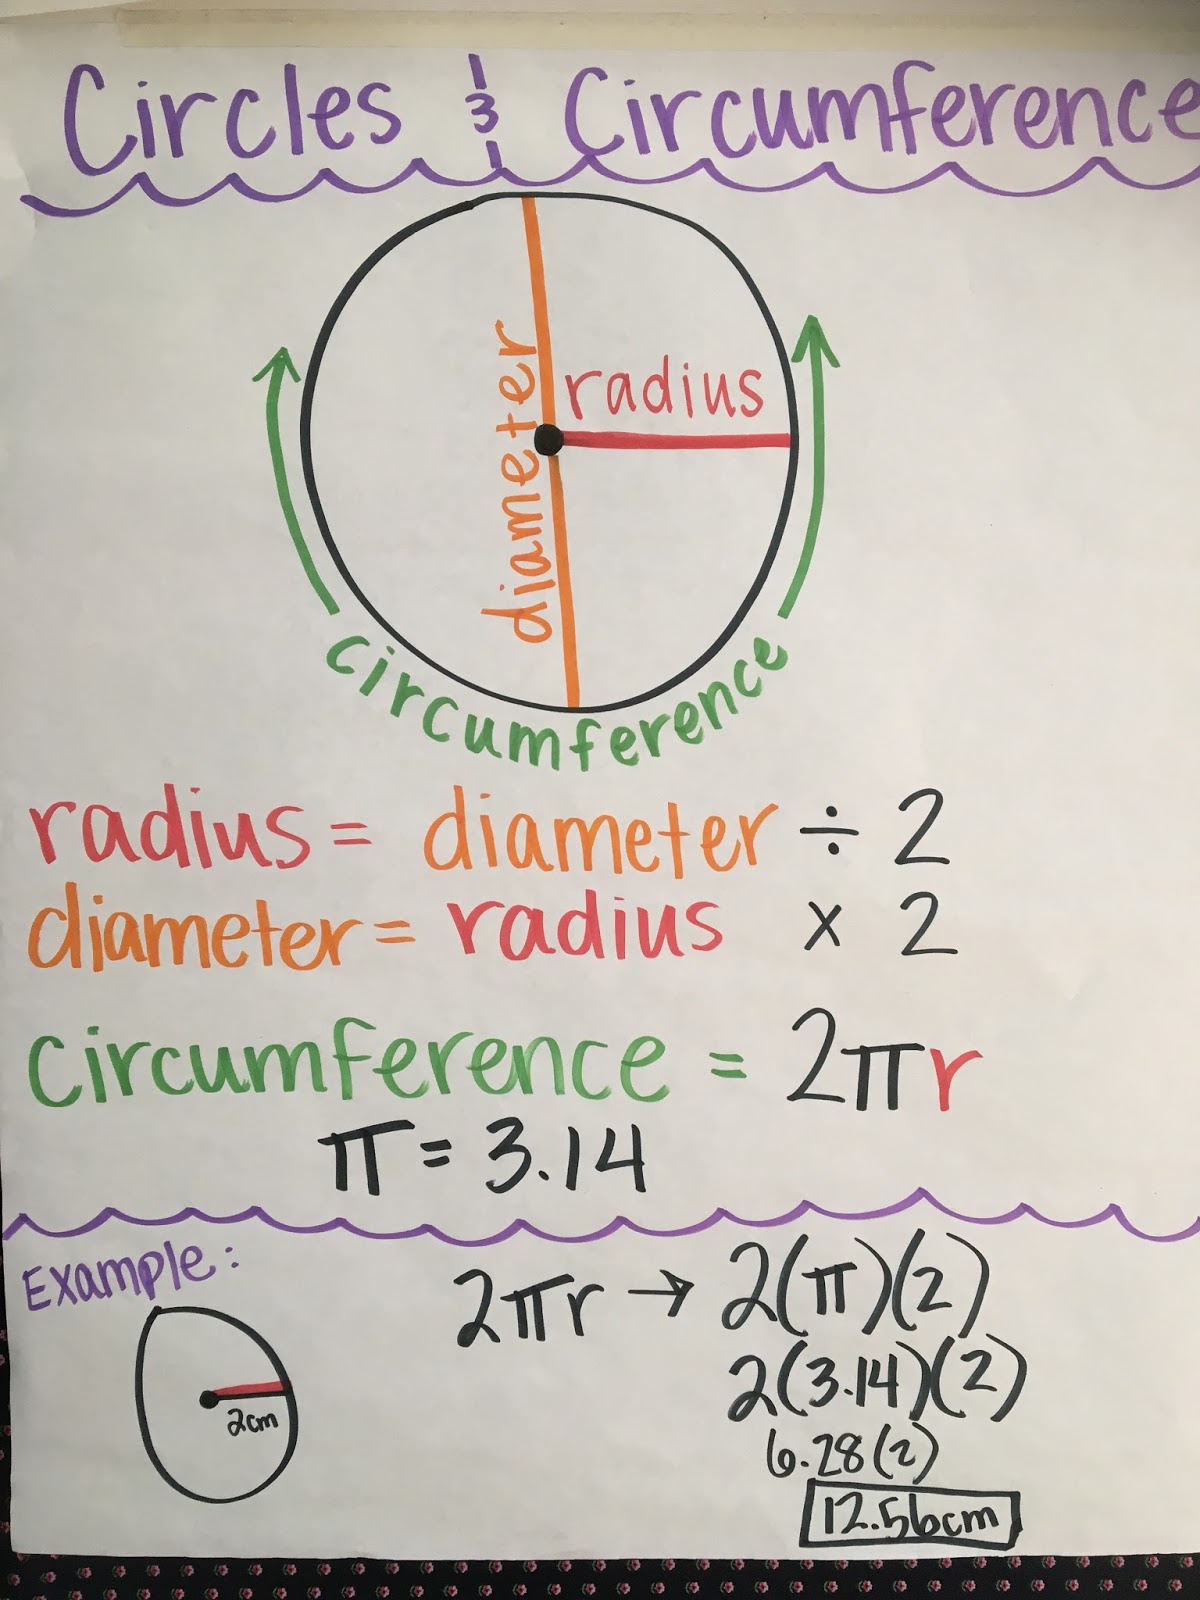 Circles & Circumference
diameter
radius
circumference
radius = diameter ÷ 2
diameter = radius x 2
circumference = 2πr
π = 3.14
Example:
2cm
2πr → 2(π)(2)
2(3.14)(2)
6.28(2)
12.56cm